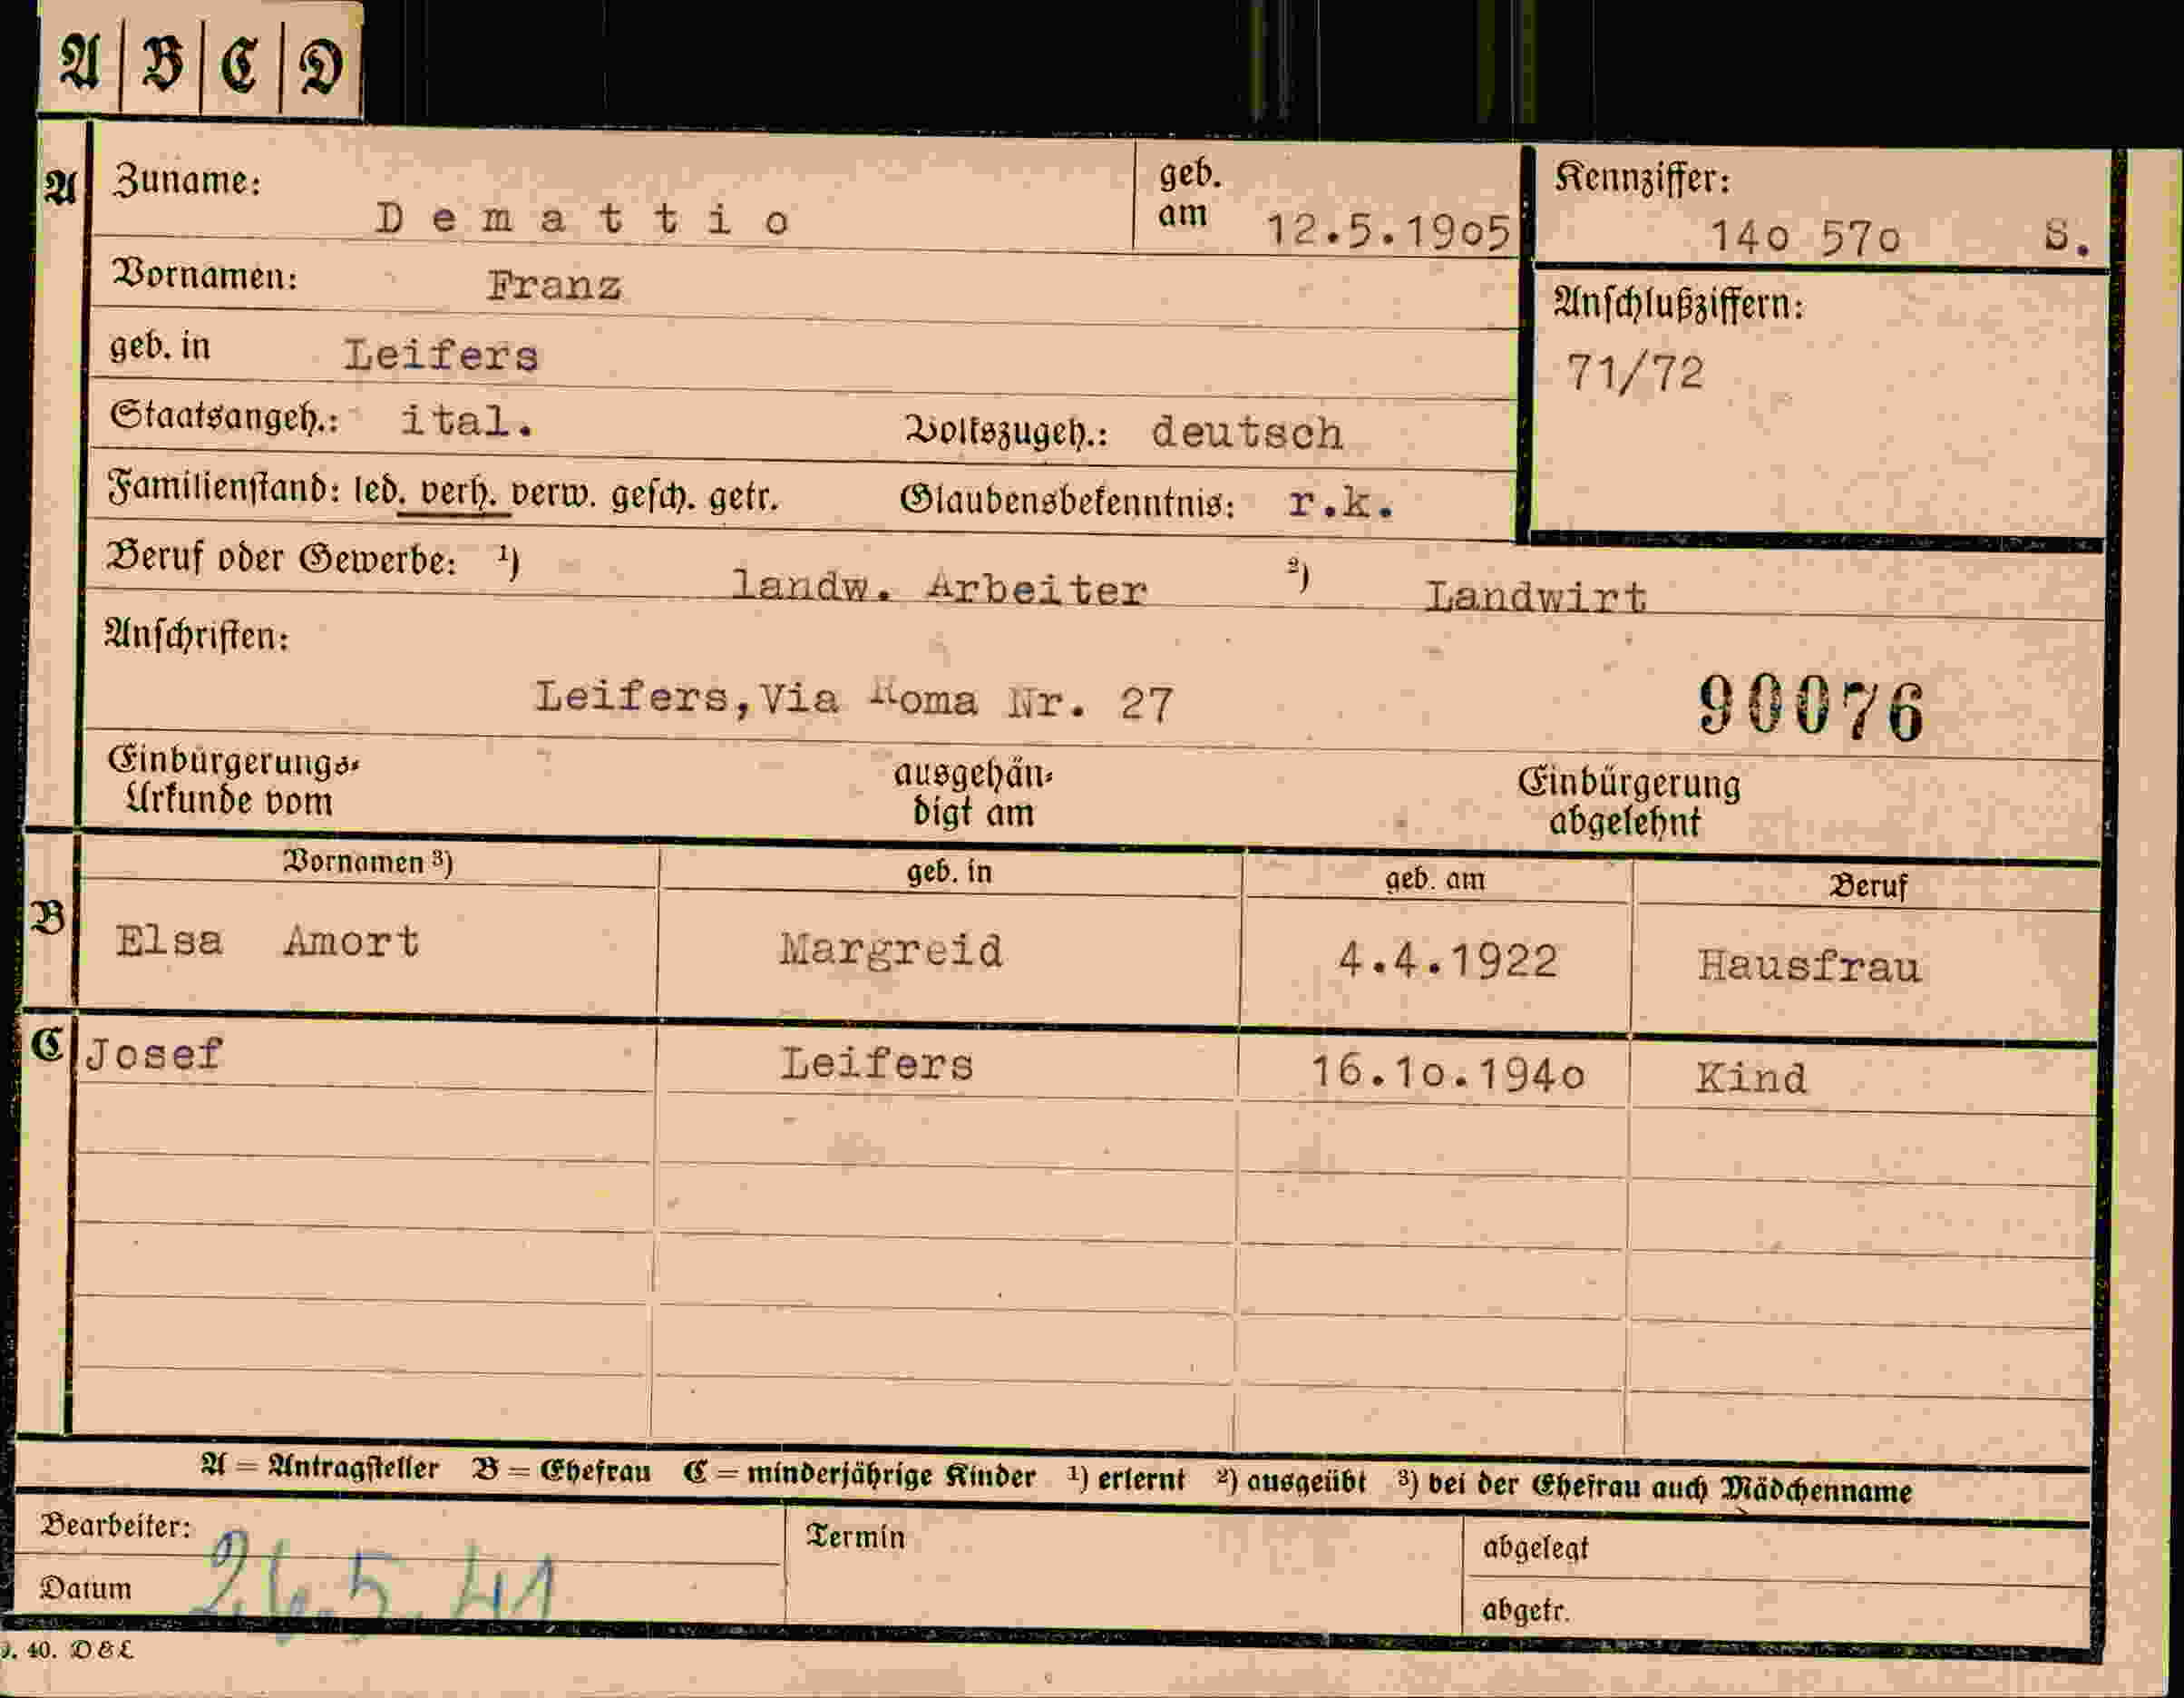 A B C D
A Zuname: Demattio geb. am 12.5.1905 Kennziffer: 140 570 S.
Vornamen: Franz
geb. in Leifers Anschlußziffern:
71/72
Staatsangeh.: ital. Volkszugeh.: deutsch
Familienstand: led. verh. verw. gesch. getr. Glaubensbekenntnis: r.k.
Beruf oder Gewerbe: ¹) landw. Arbeiter ²) Landwirt
Anschriften:
Leifers, Via Roma Nr. 27 90076
Einbürgerungs- ausgehän- Einbürgerung
Urkunde vom digt am abgelehnt
Vornamen ³) geb. in geb. am Beruf
B Elsa Amort Margreid 4.4.1922 Hausfrau
C Josef Leifers 16.10.1940 Kind
A = Antragsteller B = Ehefrau C = minderjährige Kinder ¹) erlernt ²) ausgeübt ³) bei der Ehefrau auch Mädchenname
Bearbeiter: Termin abgelegt
Datum 26.5.41 abgetr.
40. D & L